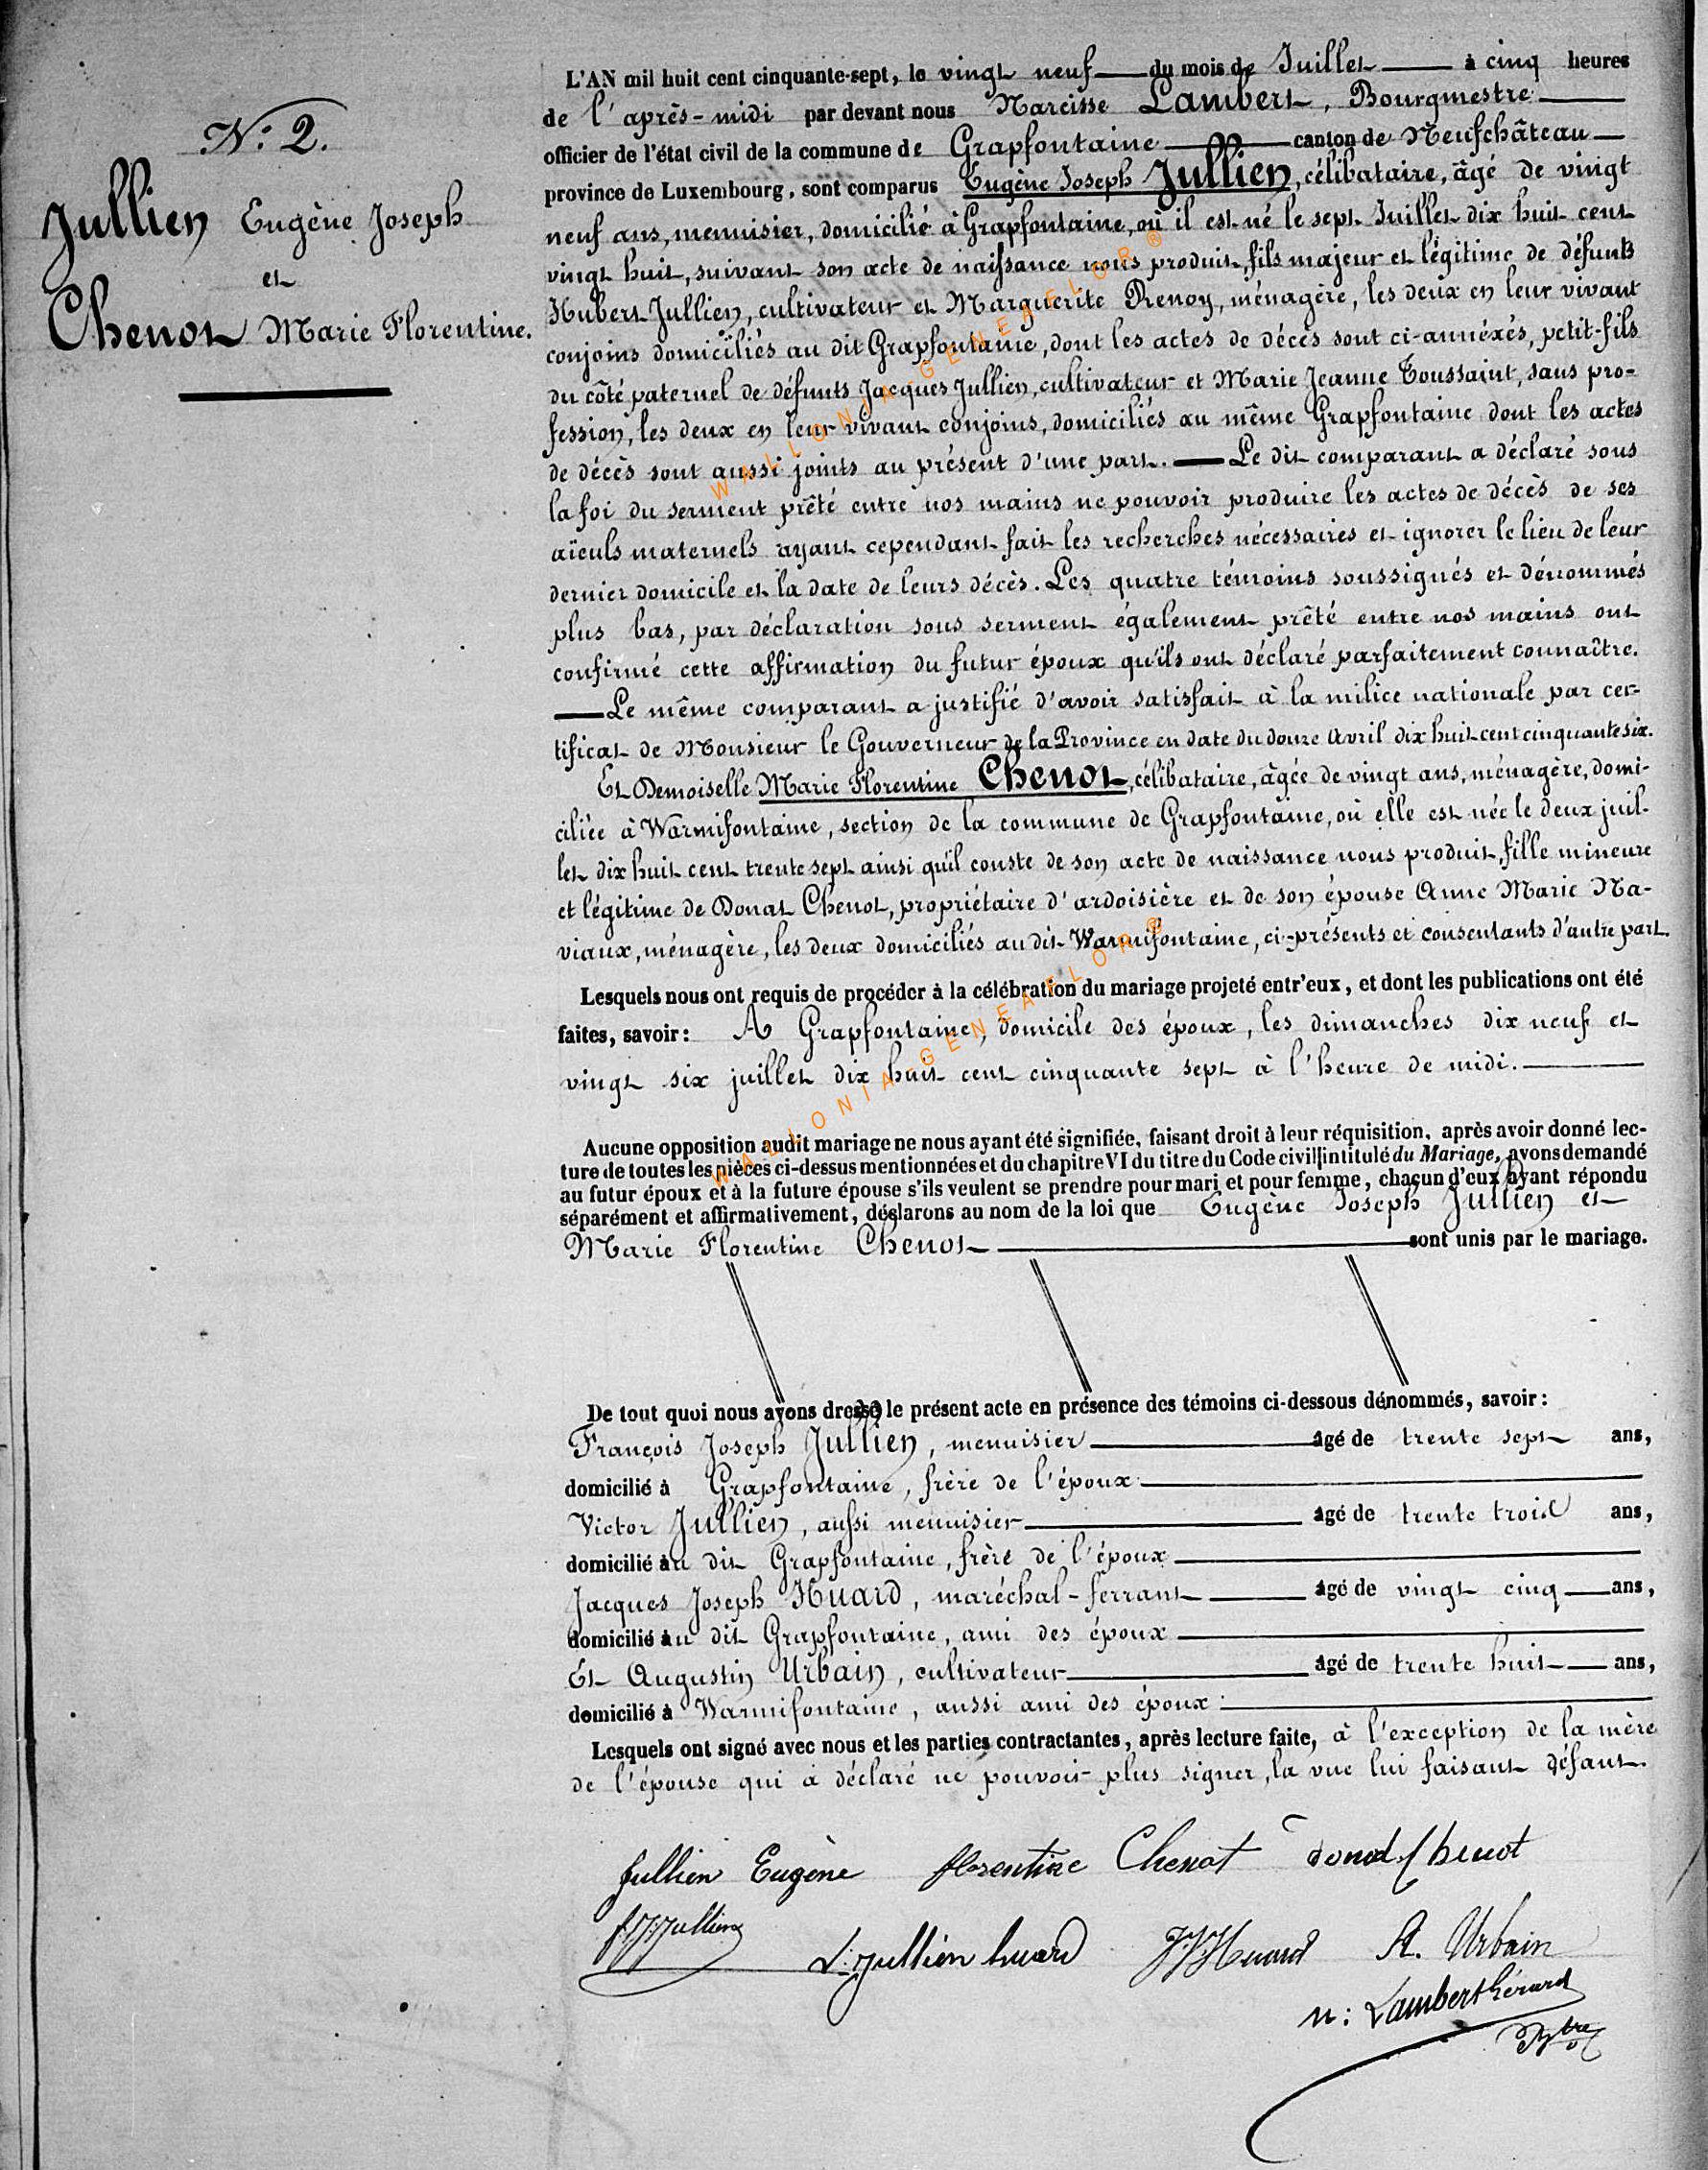 N.° 2.
Jullien Eugène Joseph
et
Chenot Marie Florentine.
L'AN mil huit cent cinquante-sept, le vingt neuf du mois de Juillet à cinq heures
de l'après-midi par devant nous Narcisse Lambert, Bourgmestre
officier de l'état civil de la commune de Grapfontaine canton de Neufchâteau
province de Luxembourg, sont comparus Eugène Joseph Jullien, célibataire, âgé de vingt
neuf ans, menuisier, domicilié à Grapfontaine, où il est né le sept Juillet dix huit cent
vingt huit, suivant son acte de naissance nous produit, fils majeur et légitime de défunts
Hubert Jullien, cultivateur et Marguerite Renoy, ménagère, les deux en leur vivant
conjoins domiciliés au dit Grapfontaine, dont les actes de décès sont ci-annéxés, petit-fils
du côté paternel de défunts Jacques Jullien, cultivateur et Marie Jeanne Toussaint, sans pro-
fession, les deux en leur vivant conjoins, domiciliés au même Grapfontaine dont les actes
de décès sont aussi joints au présent d'une part. — Le dit comparant a déclaré sous
la foi du serment prêté entre nos mains ne pouvoir produire les actes de décès de ses
aïeuls maternels ayant cependant fait les recherches nécessaires et ignorer le lieu de leur
dernier domicile et la date de leurs décès. Les quatre témoins soussignés et dénommés
plus bas, par déclaration sous serment également prêté entre nos mains ont
confirmé cette affirmation du futur époux qu'ils ont déclaré parfaitement connaître.
— Le même comparant a justifié d'avoir satisfait à la milice nationale par cer-
tificat de Monsieur le Gouverneur de la Province en date du douze Avril dix huit cent cinquante six.
Et Demoiselle Marie Florentine Chenot, célibataire, âgée de vingt ans, ménagère, domi-
ciliée à Warmifontaine, section de la commune de Grapfontaine, où elle est née le deux juil-
let dix huit cent trente sept ainsi qu'il conste de son acte de naissance nous produit, fille mineure
et légitime de Donat Chenot, propriétaire d'ardoisière et de son épouse Anne Marie Na-
viaux, ménagère, les deux domiciliés au dit Warmifontaine, ci-présents et consentants d'autre part.
Lesquels nous ont requis de procéder à la célébration du mariage projeté entr'eux, et dont les publications ont été
faites, savoir: A Grapfontaine, domicile des époux, les dimanches dix neuf et
vingt six juillet dix huit cent cinquante sept à l'heure de midi.
Aucune opposition audit mariage ne nous ayant été signifiée, faisant droit à leur réquisition, après avoir donné lec-
ture de toutes les pièces ci-dessus mentionnées et du chapitre VI du titre du Code civil intitulé du Mariage, avons demandé
au futur époux et à la future épouse s'ils veulent se prendre pour mari et pour femme, chacun d'eux ayant répondu
séparément et affirmativement, déclarons au nom de la loi que Eugène Joseph Jullien et
Marie Florentine Chenot sont unis par le mariage.
De tout quoi nous avons dressé le présent acte en présence des témoins ci-dessous dénommés, savoir:
François Joseph Jullien, menuisier âgé de trente sept ans,
domicilié à Grapfontaine, frère de l'époux
Victor Jullien, aussi menuisier âgé de trente trois ans,
domicilié au dit Grapfontaine, frère de l'époux
Jacques Joseph Huard, maréchal-ferrant âgé de vingt cinq ans,
domicilié au dit Grapfontaine, ami des époux
Et Augustin Urbain, cultivateur âgé de trente huit ans,
domicilié à Warmifontaine, aussi ami des époux.
Lesquels ont signé avec nous et les parties contractantes, après lecture faite, à l'exception de la mère
de l'épouse qui a déclaré ne pouvoir plus signer, la vue lui faisant défaut.
Jullien Eugène florentine Chenot donat Chenot
f J Jullien
V. Jullien huard J J Huard A. Urbain
N: Lambert hérard
Bgtre
WALLONIA-GENEAFLOR®
WALLONIA-GENEAFLOR®